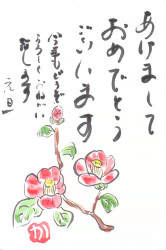 あけまして
おめでとう
ございます
今年もどうぞ
よろしくお願い
致します
元旦